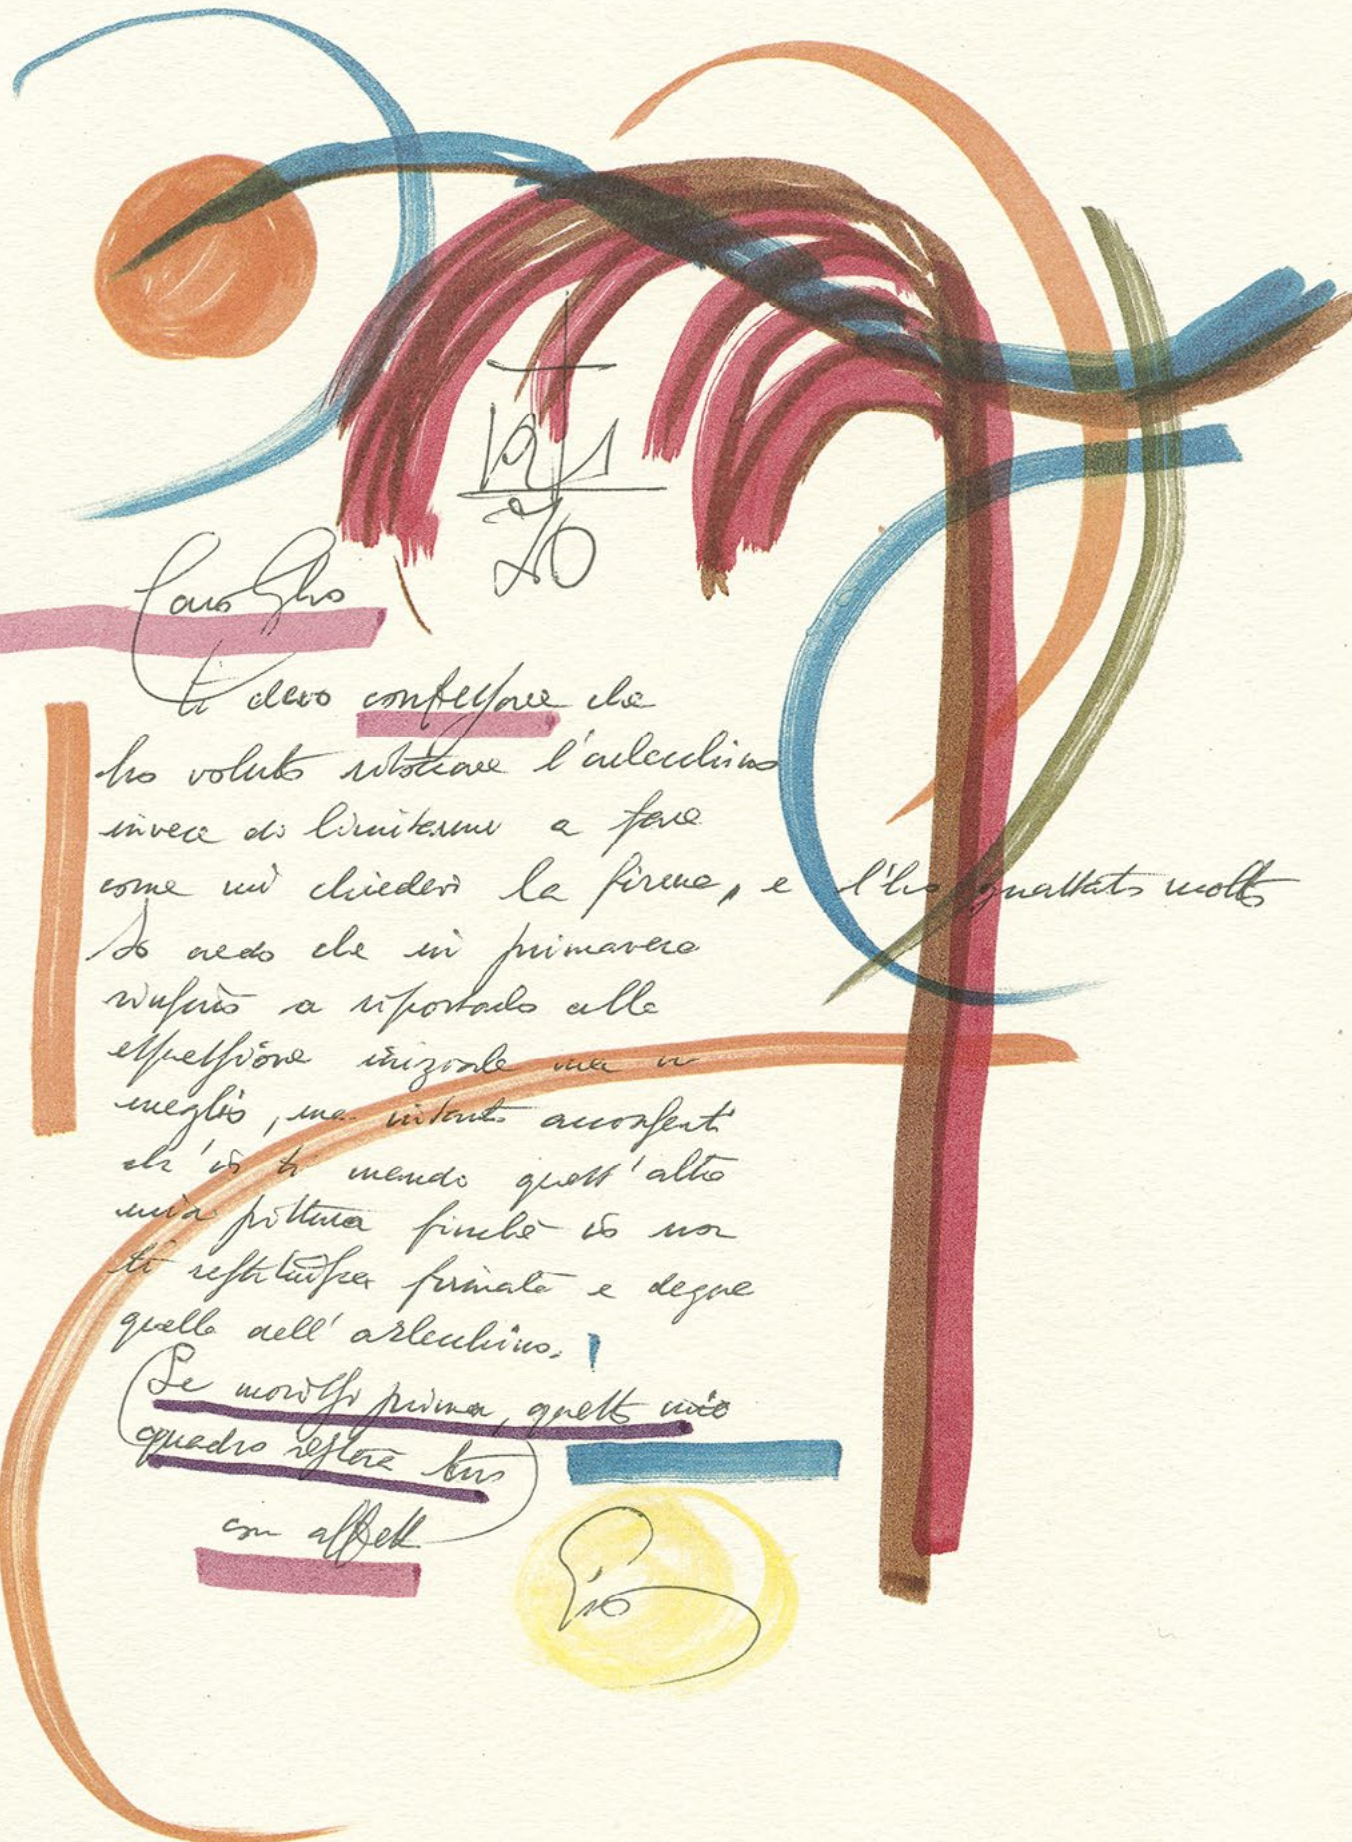 12 1
70
Caro
ti devo confessare che
ho voluto ritoccare l'arlecchino
invece di limitarmi a fare
come mi chiedevi la firma, e l'ho guastato molto
Io credo che in primavera
riuscirò a riportarlo alla
espressione iniziale ma in
meglio, ma intanto acconsenti
ch'io ti mando quest'altra
mia pittura finché io non
ti restituisca firmata e degna
quella dell'arlecchino.
Se morissi prima, questo mio
quadro resterà tuo
con affetto
Pio